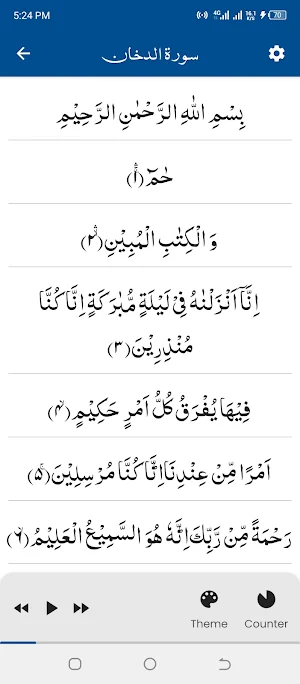 5:24 PM
4G 16.1 K/s 70
سورة الدخان
بِسْمِ اللّٰهِ الرَّحْمٰنِ الرَّحِيْمِ
حٰمٓ ۛ(۱)
وَالْكِتٰبِ الْمُبِيْنِ ۛ(۲)
اِنَّاۤ اَنْزَلْنٰهُ فِيْ لَيْلَةٍ مُّبٰرَكَةٍ اِنَّا كُنَّا
مُنْذِرِيْنَ(۳)
فِيْهَا يُفْرَقُ كُلُّ اَمْرٍ حَكِيْمٍ ۙ(۴)
اَمْرًا مِّنْ عِنْدِنَا اِنَّا كُنَّا مُرْسِلِيْنَ ۚ(۵)
رَحْمَةً مِّنْ رَّبِّكَ اِنَّهٗ هُوَ السَّمِيْعُ الْعَلِيْمُ ۙ(۶)
Theme Counter